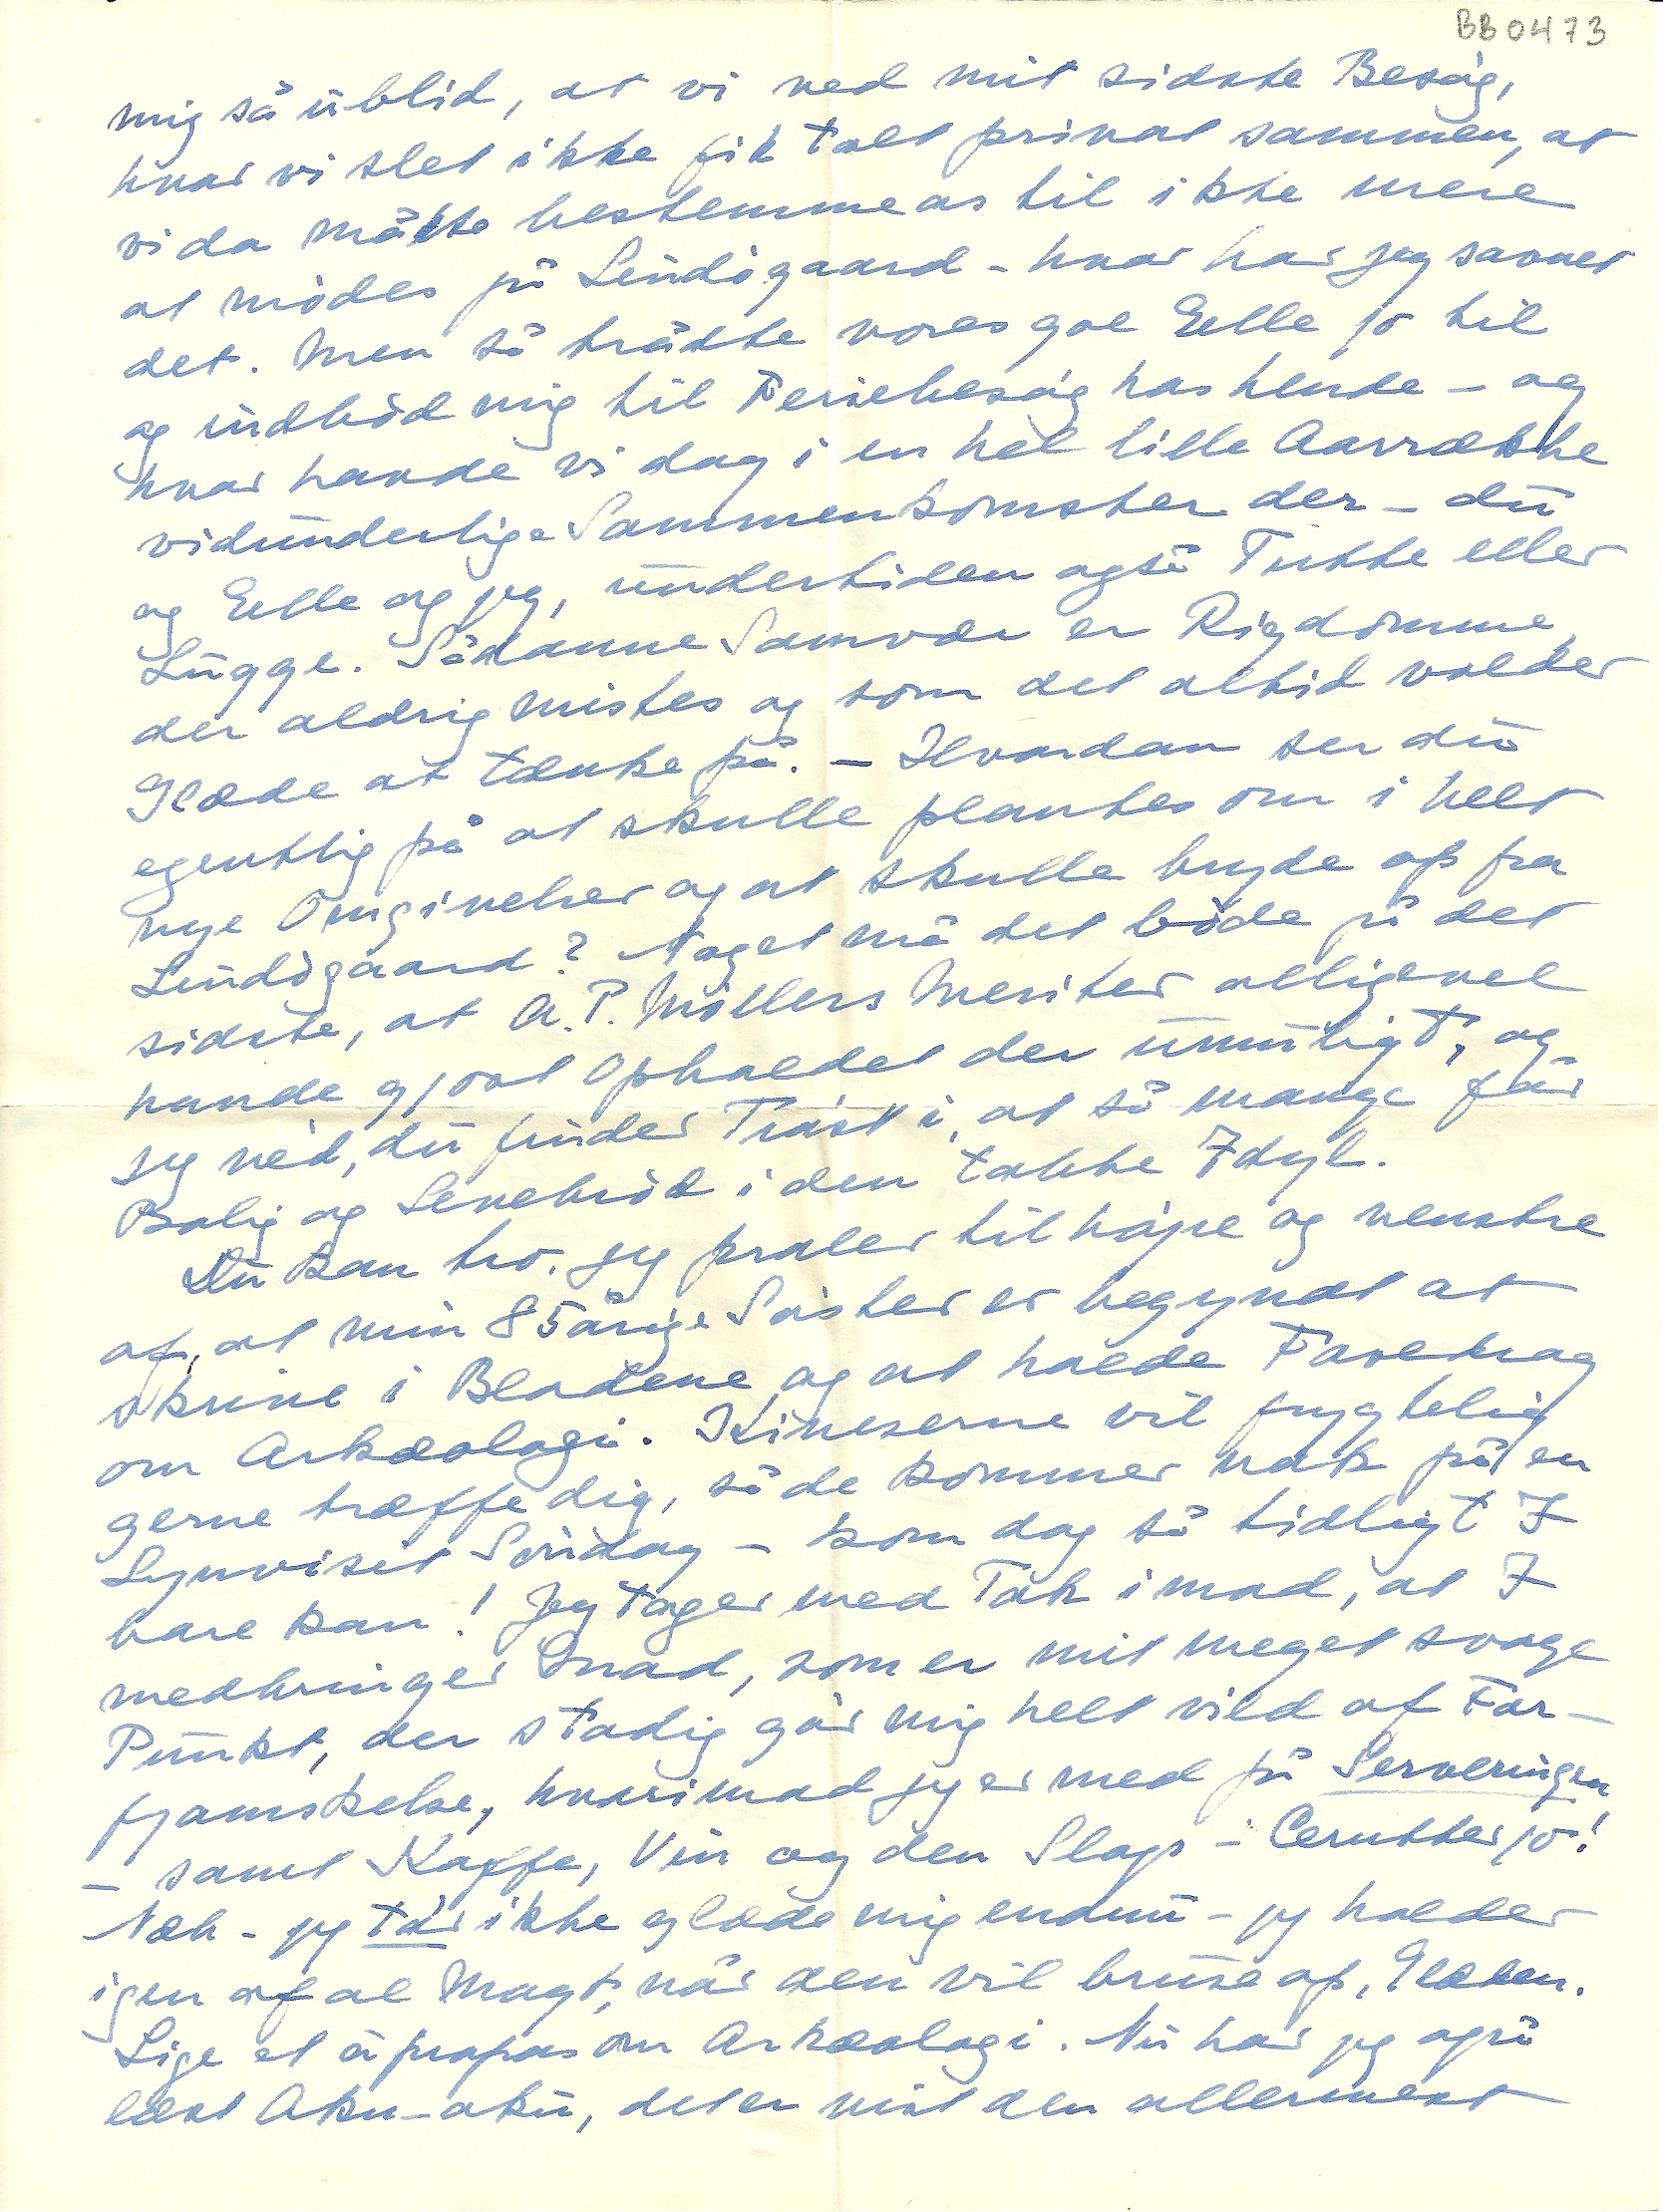 BB0473
mig så ublid, at vi ved mit sidste Besøg,
hvor vi slet ikke fik talt privat sammen, at
vi da måtte bestemme os til ikke mere
at mødes på Lindøgaard - hvor har jeg savnet
det. Men så trådte vores gol Elle jo til
og indbød mig til Feriebesøg hos hende - og
hvor havde vi dog i en hel lille Aarrække
vidunderlige Sammenkomster der - du
og Elle og jeg, undertiden også Tutte eller
Lugge. Sådanne Samvær er Rigdomme,
der aldrig mistes og som det altid volder
Glæde at tænke på. - Hvordan ser du
egentlig på at skulle plantes om i helt
nye Omgivelser og at skulle bryde op fra
Lindøgaard? Noget må det bøde på det
sidste, at A.P. Møllers Meriter alligevel
havde gjort Opholdet der umuligt, og
jeg véd, du finder Trøst i, at så mange får
Bolig og Levebrød i den tabte Idyl.
Du kan tro, jeg praler til højre og venstre
af, at min 85årige Søster er begyndt at
skrive i Bladene og at holde Foredrag
om Arkæologi. Kineserne vil frygtelig
gerne træffe dig, så de kommer nok på en
Lynvisit Søndag - kom dog så tidligt I
bare kan! Jeg tager med Tak imod, at I
medbringer Mad, som er mit meget svage
Punkt, der stadig gør mig helt vild af For-
fjamskelse, hvorimod jeg er med på Serveringen
- samt Kaffe, Vin og den Slags - Cerutter jo!
Næh - jeg tør ikke glæde mig endnu - jeg holder
igen af al Magt, når den vil bruse op, Glæden.
Lige et à propos om Arkæologi. Nu har jeg også
læst Aku-aku, det er vist den allermest